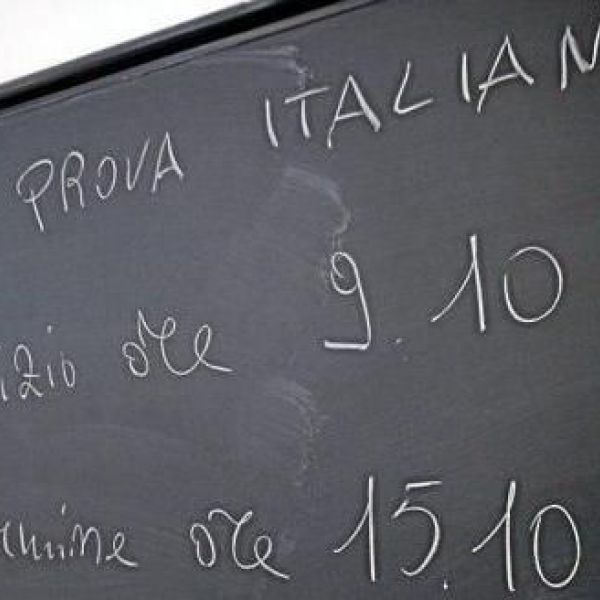 PROVA ITALIAN
izio ore 9.10
rmine ore 15.10